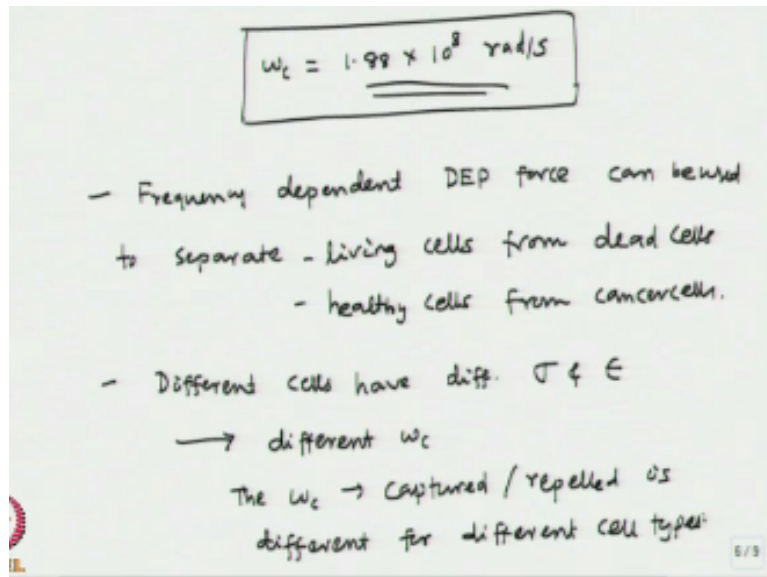 ωc = 1.98 × 10⁸ rad/s
- Frequency dependent DEP force can be used
to separate - living cells from dead cells
- healthy cells from cancer cells.
- Different cells have diff. σ & ϵ
→ different ωc
The ωc → captured / repelled is
different for different cell types.
6/9